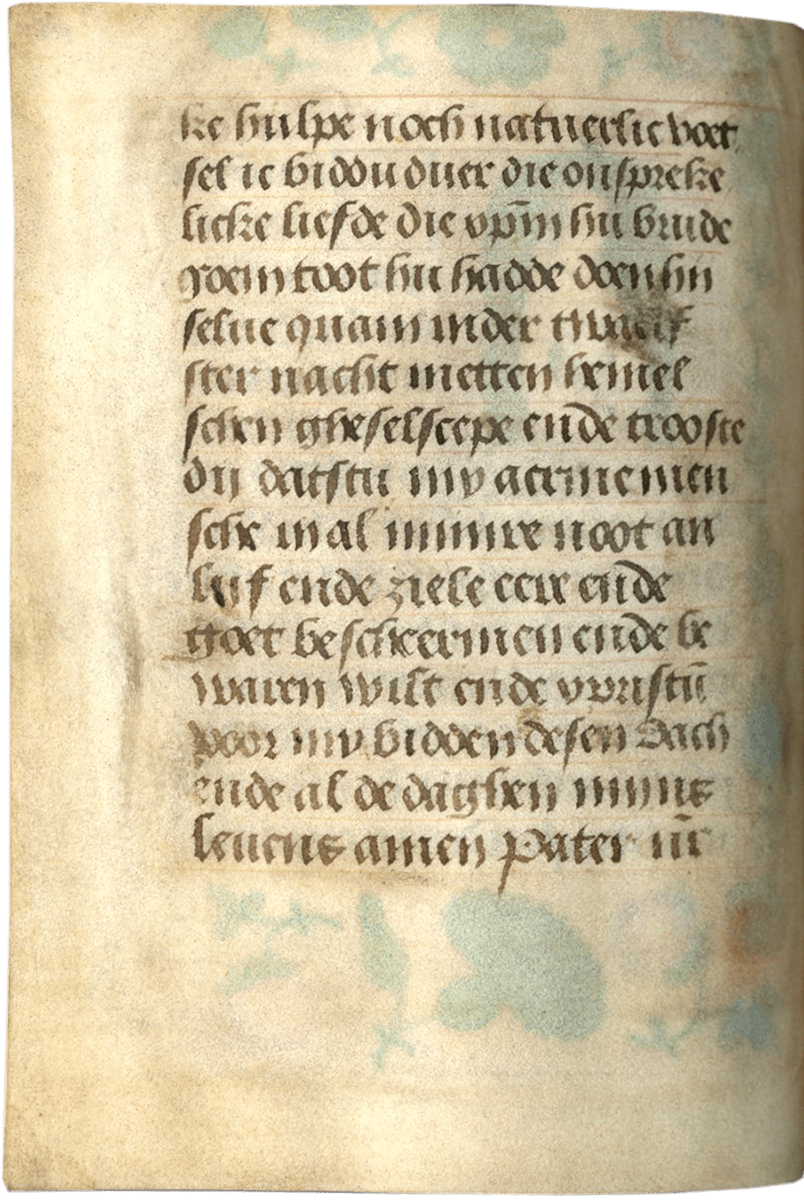 ke hulpe noch natuerlic voet
sel ic biddu duer die onspreke
licke liefde die dyn hu brude
goem toot hu hadde doen hu
selue quam inder twaelf
ster nacht metten hemel
schen gheselscepe ende trooste
dij datstu my aerme men
sche in al mynre noot an
lijf ende ziele eere ende
goet bescheermen ende be
waren wilt ende
voor my bidden desen dach
ende al de daghen myns
leuens amen Pater nr̄